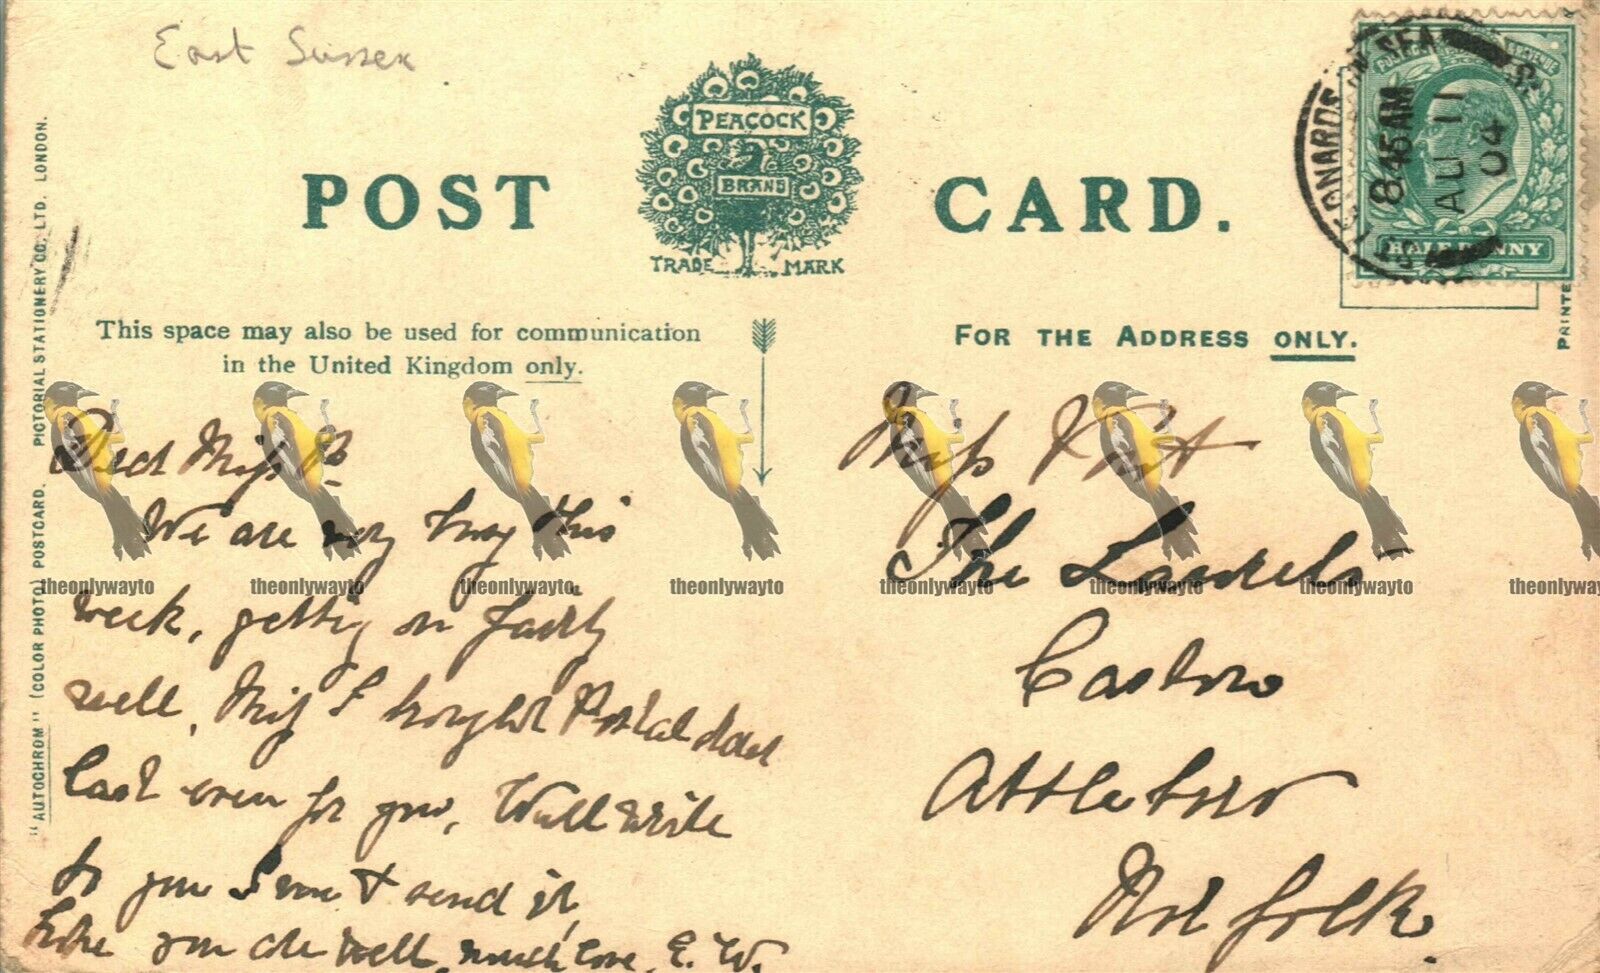 East Sussex
PEACOCK
BRAND
TRADE MARK
POST CARD.
ST LEONARDS ON SEA
8.45 AM
AU 11
04
S.O
HALFPENNY
This space may also be used for communication
in the United Kingdom only.
FOR THE ADDRESS ONLY.
"AUTOCHROM" (COLOR PHOTO) POSTCARD. PICTORIAL STATIONERY CO., LTD. LONDON.
PRINTE
Miss P.
We are very busy this
week, getting on fairly
well, Miss S bought Postal
last even for you, Will write
to you soon & send it,
Hope you are well, much love, E. W.
Miss
The Laurels
Caston
Attleboro
Norfolk.
theonlywayto theonlywayto theonlywayto theonlywayto theonlywayto theonlywayto theonlywayto theonlywayto